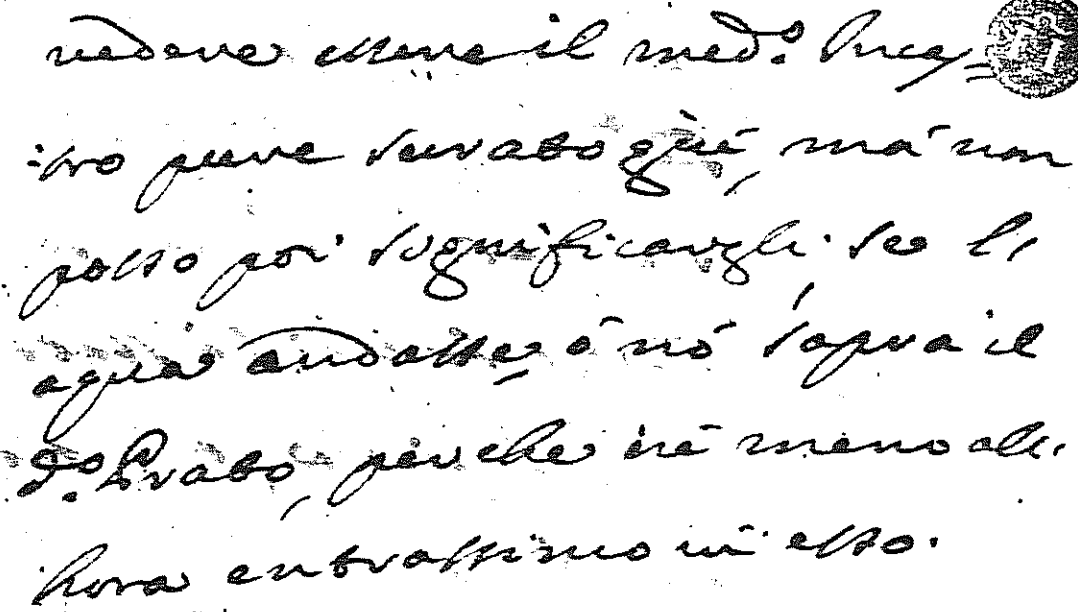 vedere essere il med.º Inca=
:stro pure serrato giù, mà non
posso poi significargli se l'
aqua andasse, ò nò sopra il
d.º Prato, perche nè meno all'
hora entrassimo in esso.